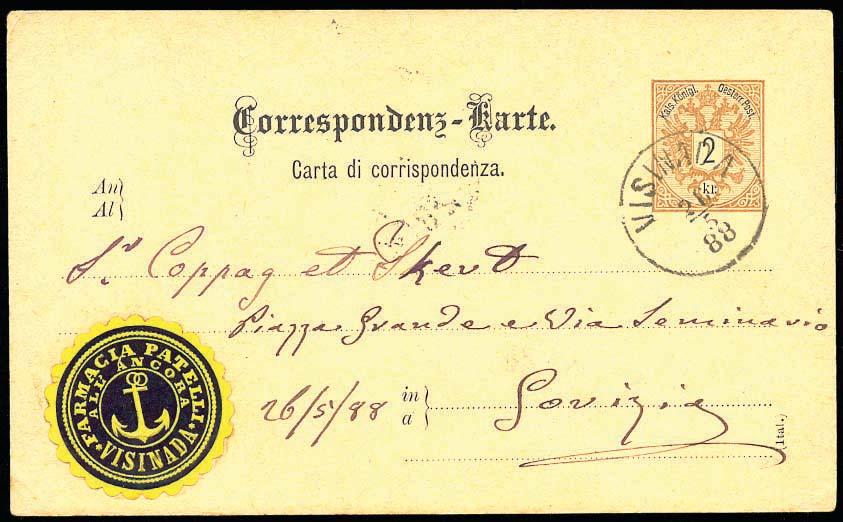 Kais. Königl. Oesterr. Post
2
kr.
Correspondenz-Karte.
Carta di corrispondenza.
VISINADA
26/5
88
An
Al
S.r Coppag et Skert
Piazza Grande e Via Seminario
26/5/88
in
a
Gorizia
(Ital.)
FARMACIA PATELLI
ALL' ANCORA
VISINADA